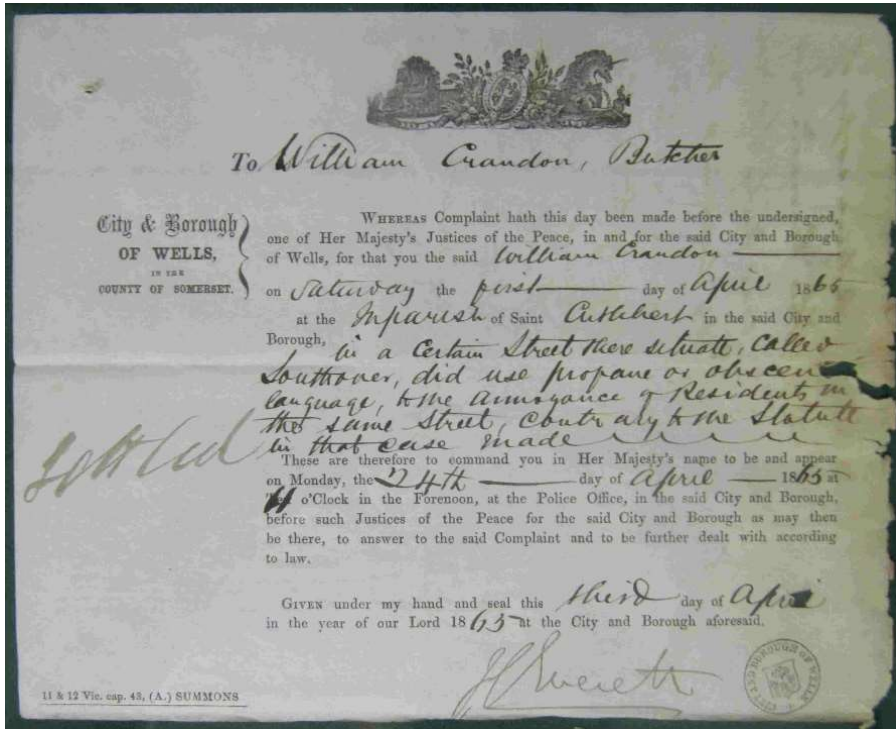 To William Crandon, Butcher
City & Borough
OF WELLS,
IN THE
COUNTY OF SOMERSET.
WHEREAS Complaint hath this day been made before the undersigned,
one of Her Majesty's Justices of the Peace, in and for the said City and Borough
of Wells, for that you the said William Crandon
on Saturday the first day of April 1865
at the Inparish of Saint Cuthbert in the said City and
Borough, in a Certain Street there situate, called
Southover, did use profane or obscene
language, to the annoyance of Residents in
the same Street, contrary to the Statute
in that case made
Settled
These are therefore to command you in Her Majesty's name to be and appear
on Monday, the 24th day of April 1865 at
11 o'Clock in the Forenoon, at the Police Office, in the said City and Borough,
before such Justices of the Peace for the said City and Borough as may then
be there, to answer to the said Complaint and to be further dealt with according
to law.
GIVEN under my hand and seal this third day of April
in the year of our Lord 1865 at the City and Borough aforesaid.
Everett
CITY AND BOROUGH OF WELLS
11 & 12 Vic. cap. 43, (A.) SUMMONS